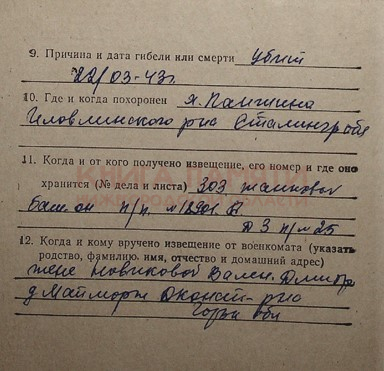 9. Причина и дата гибели или смерти убит
22/03-43г.
10. Где и когда похоронен х. Паншина
Иловлинского р-на Сталингр обл
КНИГА ПАМЯТИ
11. Когда и от кого получено извещение, его номер и где оно
хранится (№ дела и листа) 303 танковой
бат-он п/п. №
д 3 п/№25
12. Когда и кому вручено извещение от военкомата (указать
родство, фамилию, имя, отчество и домашний адрес)
жене Новиковой Вален. Дмитр
д
Горьк обл